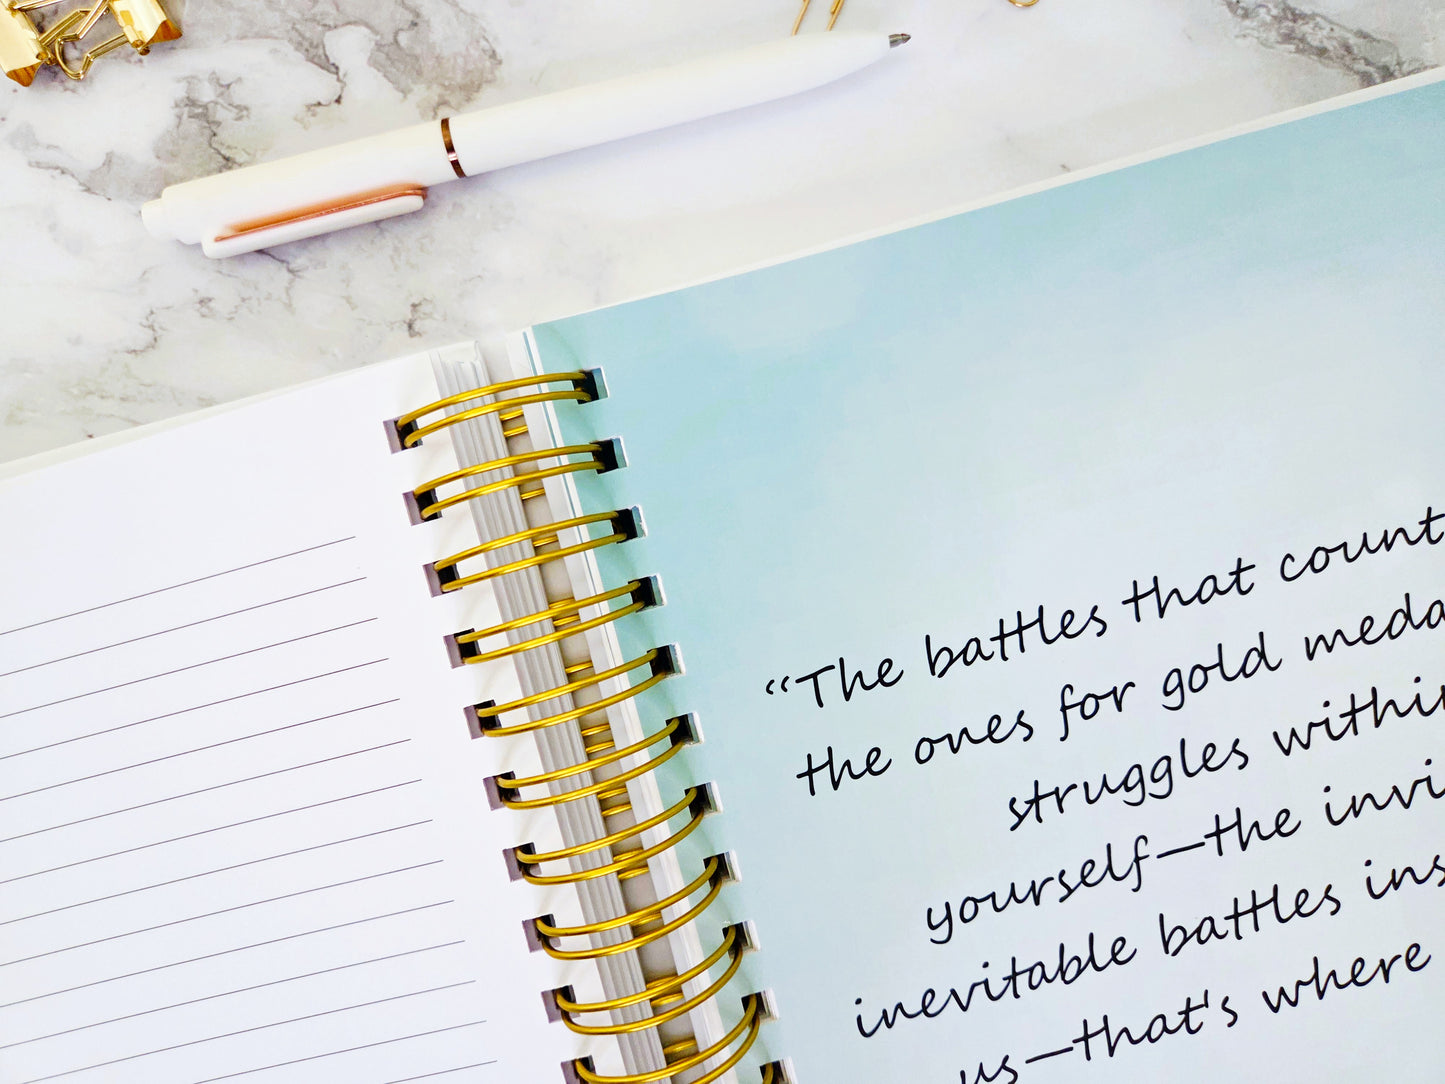 “The battles that count
the ones for gold meda
struggles within
yourself—the invi
inevitable battles ins
us—that's where